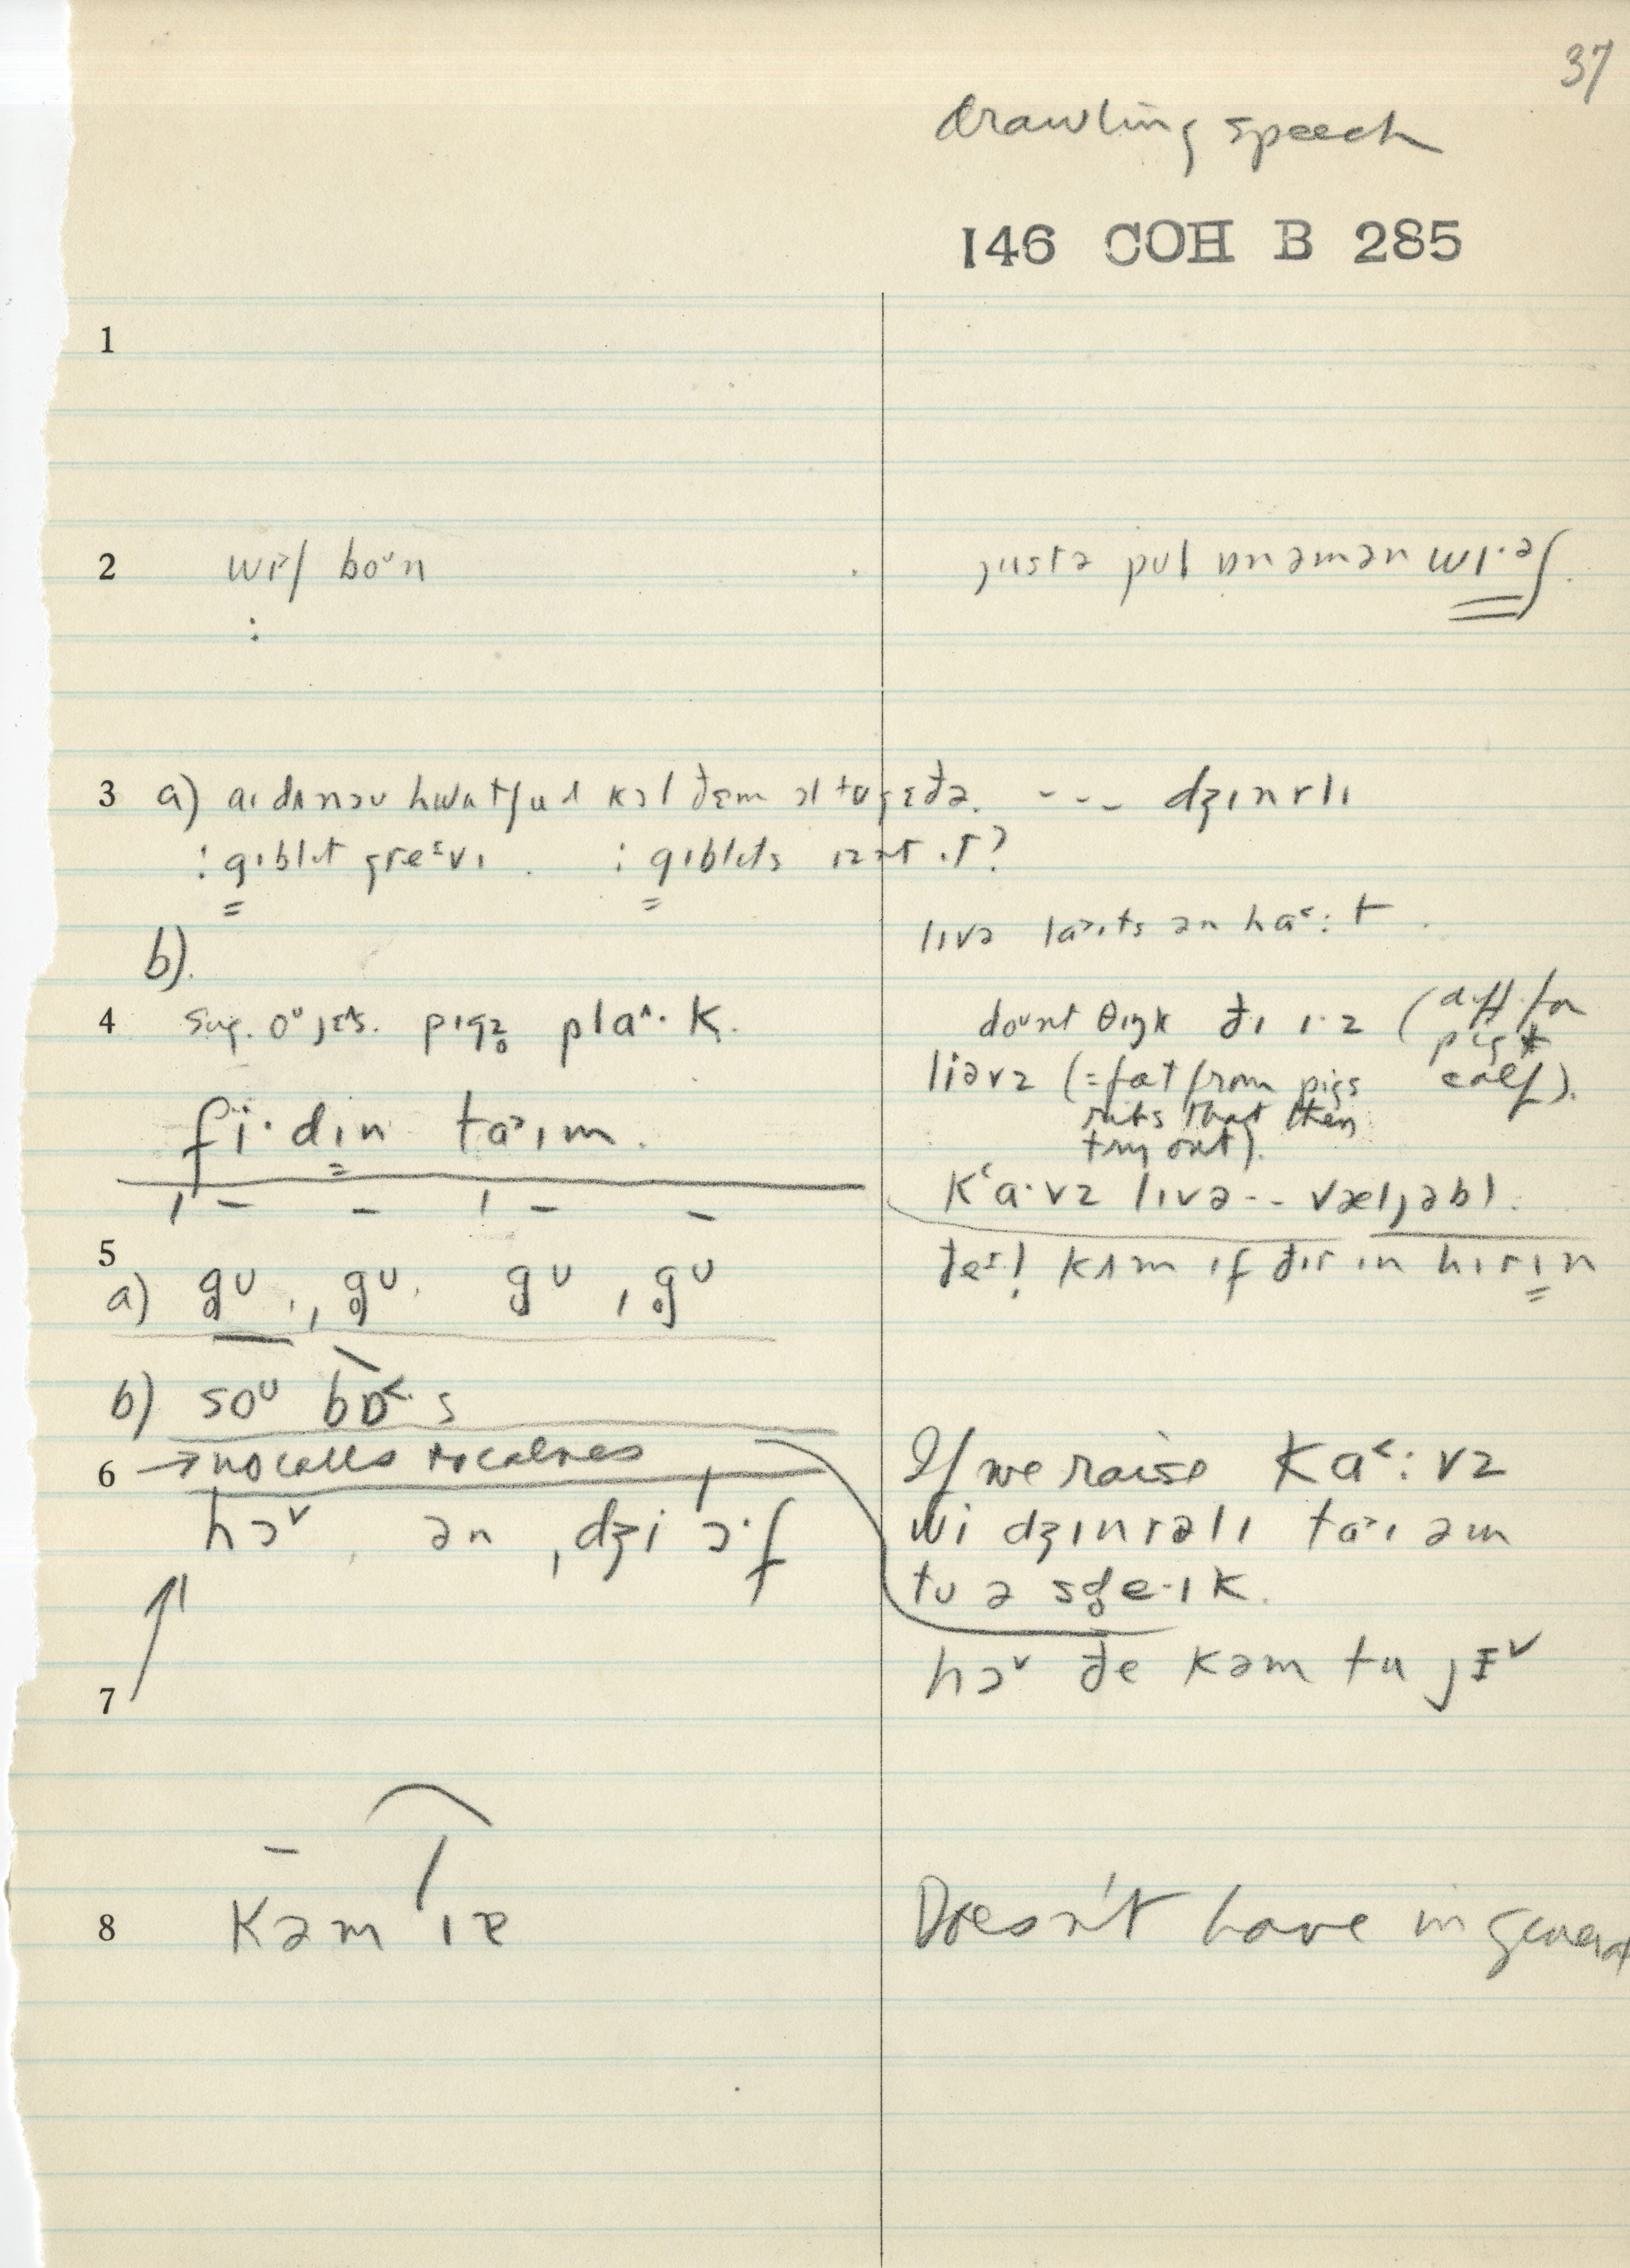 37
Drawling speech
146 COH B 285
1
2 wɪʃ boᵘn
jusтə pul ɒnəmən wɪ·əʃ.
3 a) aɪ dʌnəu hwɒtʃu kɔl ðɛm ɔltugɛðə. --- dʒɪnrlɪ
: gɪblɪt greᶦvɪ. : gɪblɪts ɪznt ɪt?
lɪvə laᵊɪts ən ha˂:t.
b).
4 sug. oᵘ jɛs. pɪgz̥ pla^·k.
doᵘnt θɪŋk ðɪ ɪ·z (diff. for pig & calf).
liəvz (=fat from pigs
that then
try out).
fi·dɪn ta˃ɪm.
kʻa·vz lɪvə -- væljəbl.
5
a) g̥ᴜ, g̥ᴜ, gᴜ, g̥ᴜ
ðeᶦ! kʌm ɪf ðɪr ɪn hɪrɪn
b) soᵁ bɒ˂·s
6 → no calls to calves
If we raise ka˂:vz
wi dʒɪnrəlɪ ta˃ɪ əm
tu ə sd̥e·ɪk.
hɔˇ, ən, dʒi ɔ·f
7
hɔˇ ðe kəm tu jɪˇ
8 kəm ɪɐ
Doesn't have in general